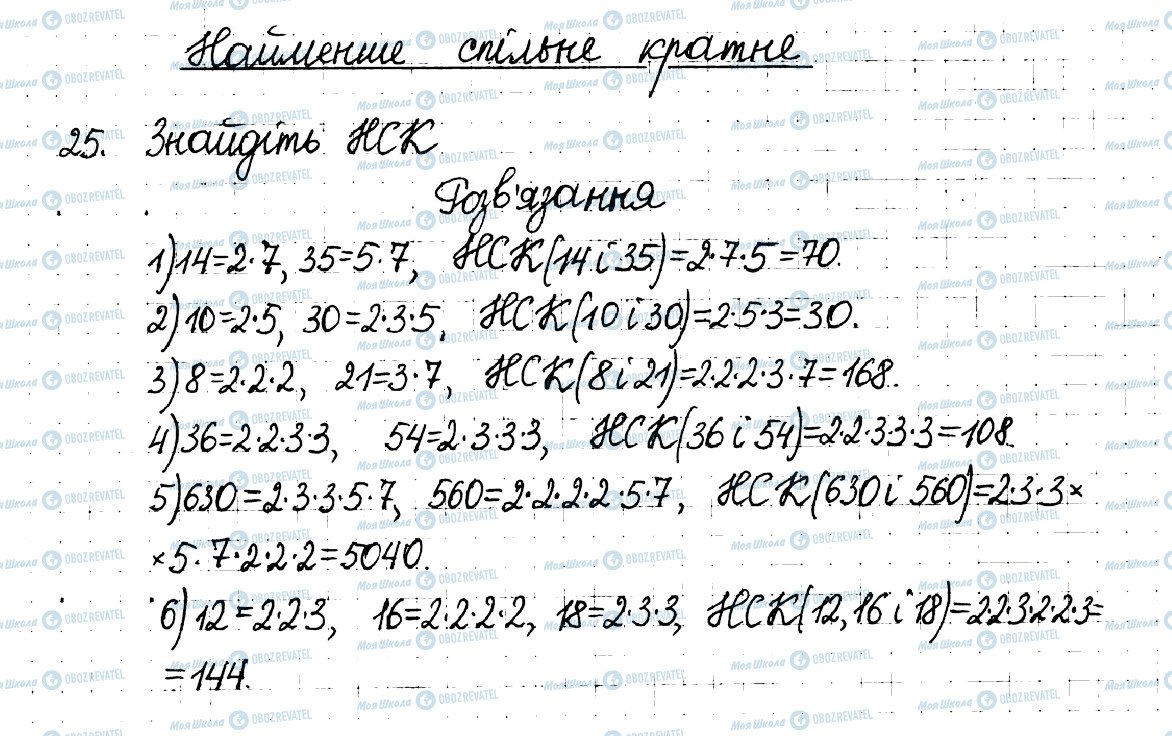 Найменше спільне кратне
25. Знайдіть НСК
Розв'язання
1) 14=2·7, 35=5·7, НСК(14 і 35)=2·7·5=70.
2) 10=2·5, 30=2·3·5, НСК(10 і 30)=2·5·3=30.
3) 8=2·2·2, 21=3·7, НСК(8 і 21)=2·2·2·3·7=168.
4) 36=2·2·3·3, 54=2·3·3·3, НСК(36 і 54)=2·2·3·3·3=108.
5) 630=2·3·3·5·7, 560=2·2·2·2·5·7, НСК(630 і 560)=2·3·3×
×5·7·2·2·2=5040.
6) 12=2·2·3, 16=2·2·2·2, 18=2·3·3, НСК(12, 16 і 18)=2·2·3·2·2·3=
=144.